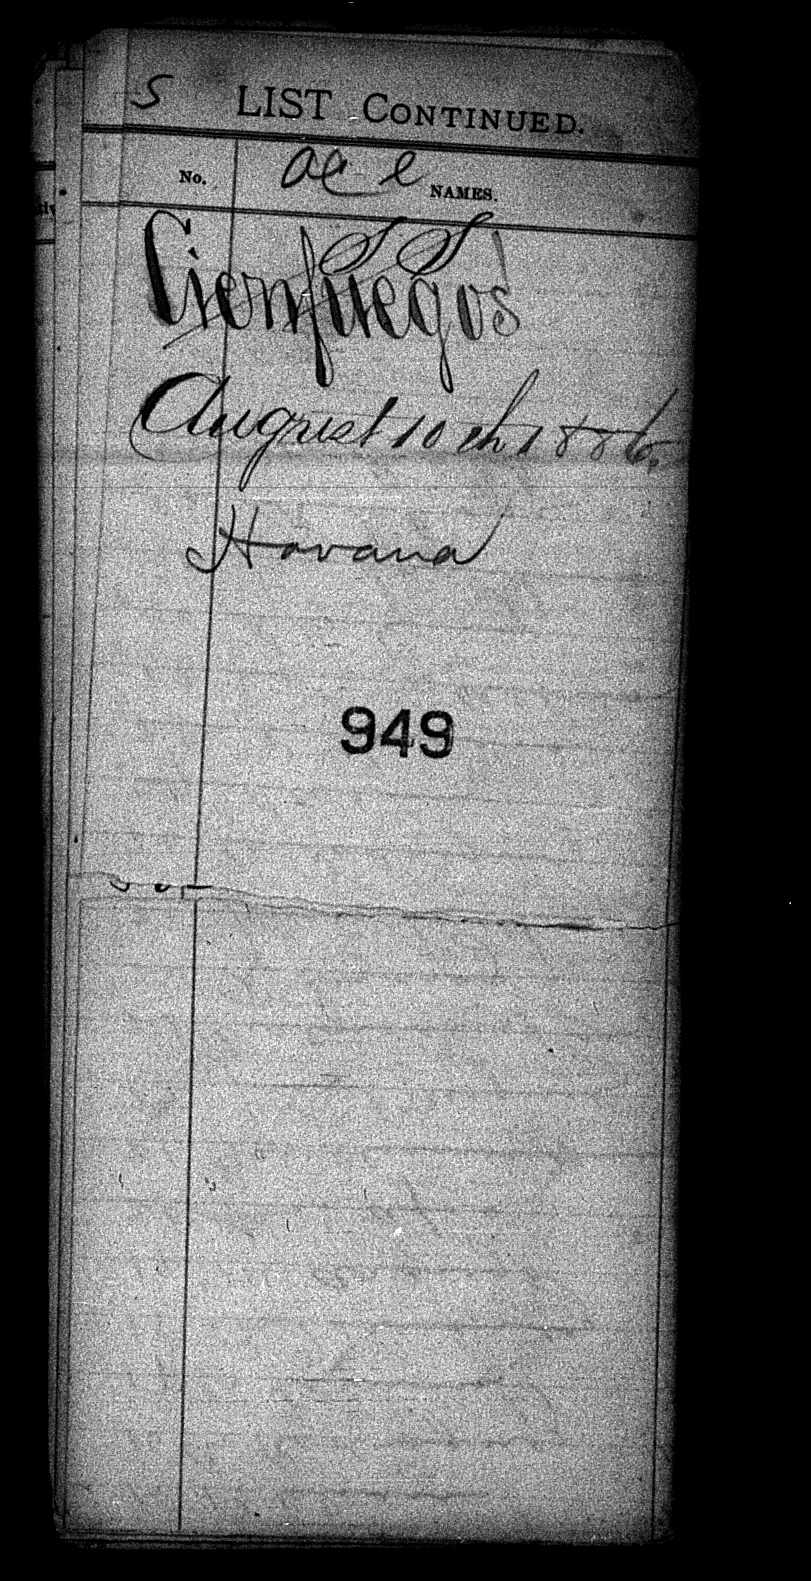 S LIST CONTINUED.
No. NAMES.
S S Cienfuegos
August 10 th 1886.
Havana
949